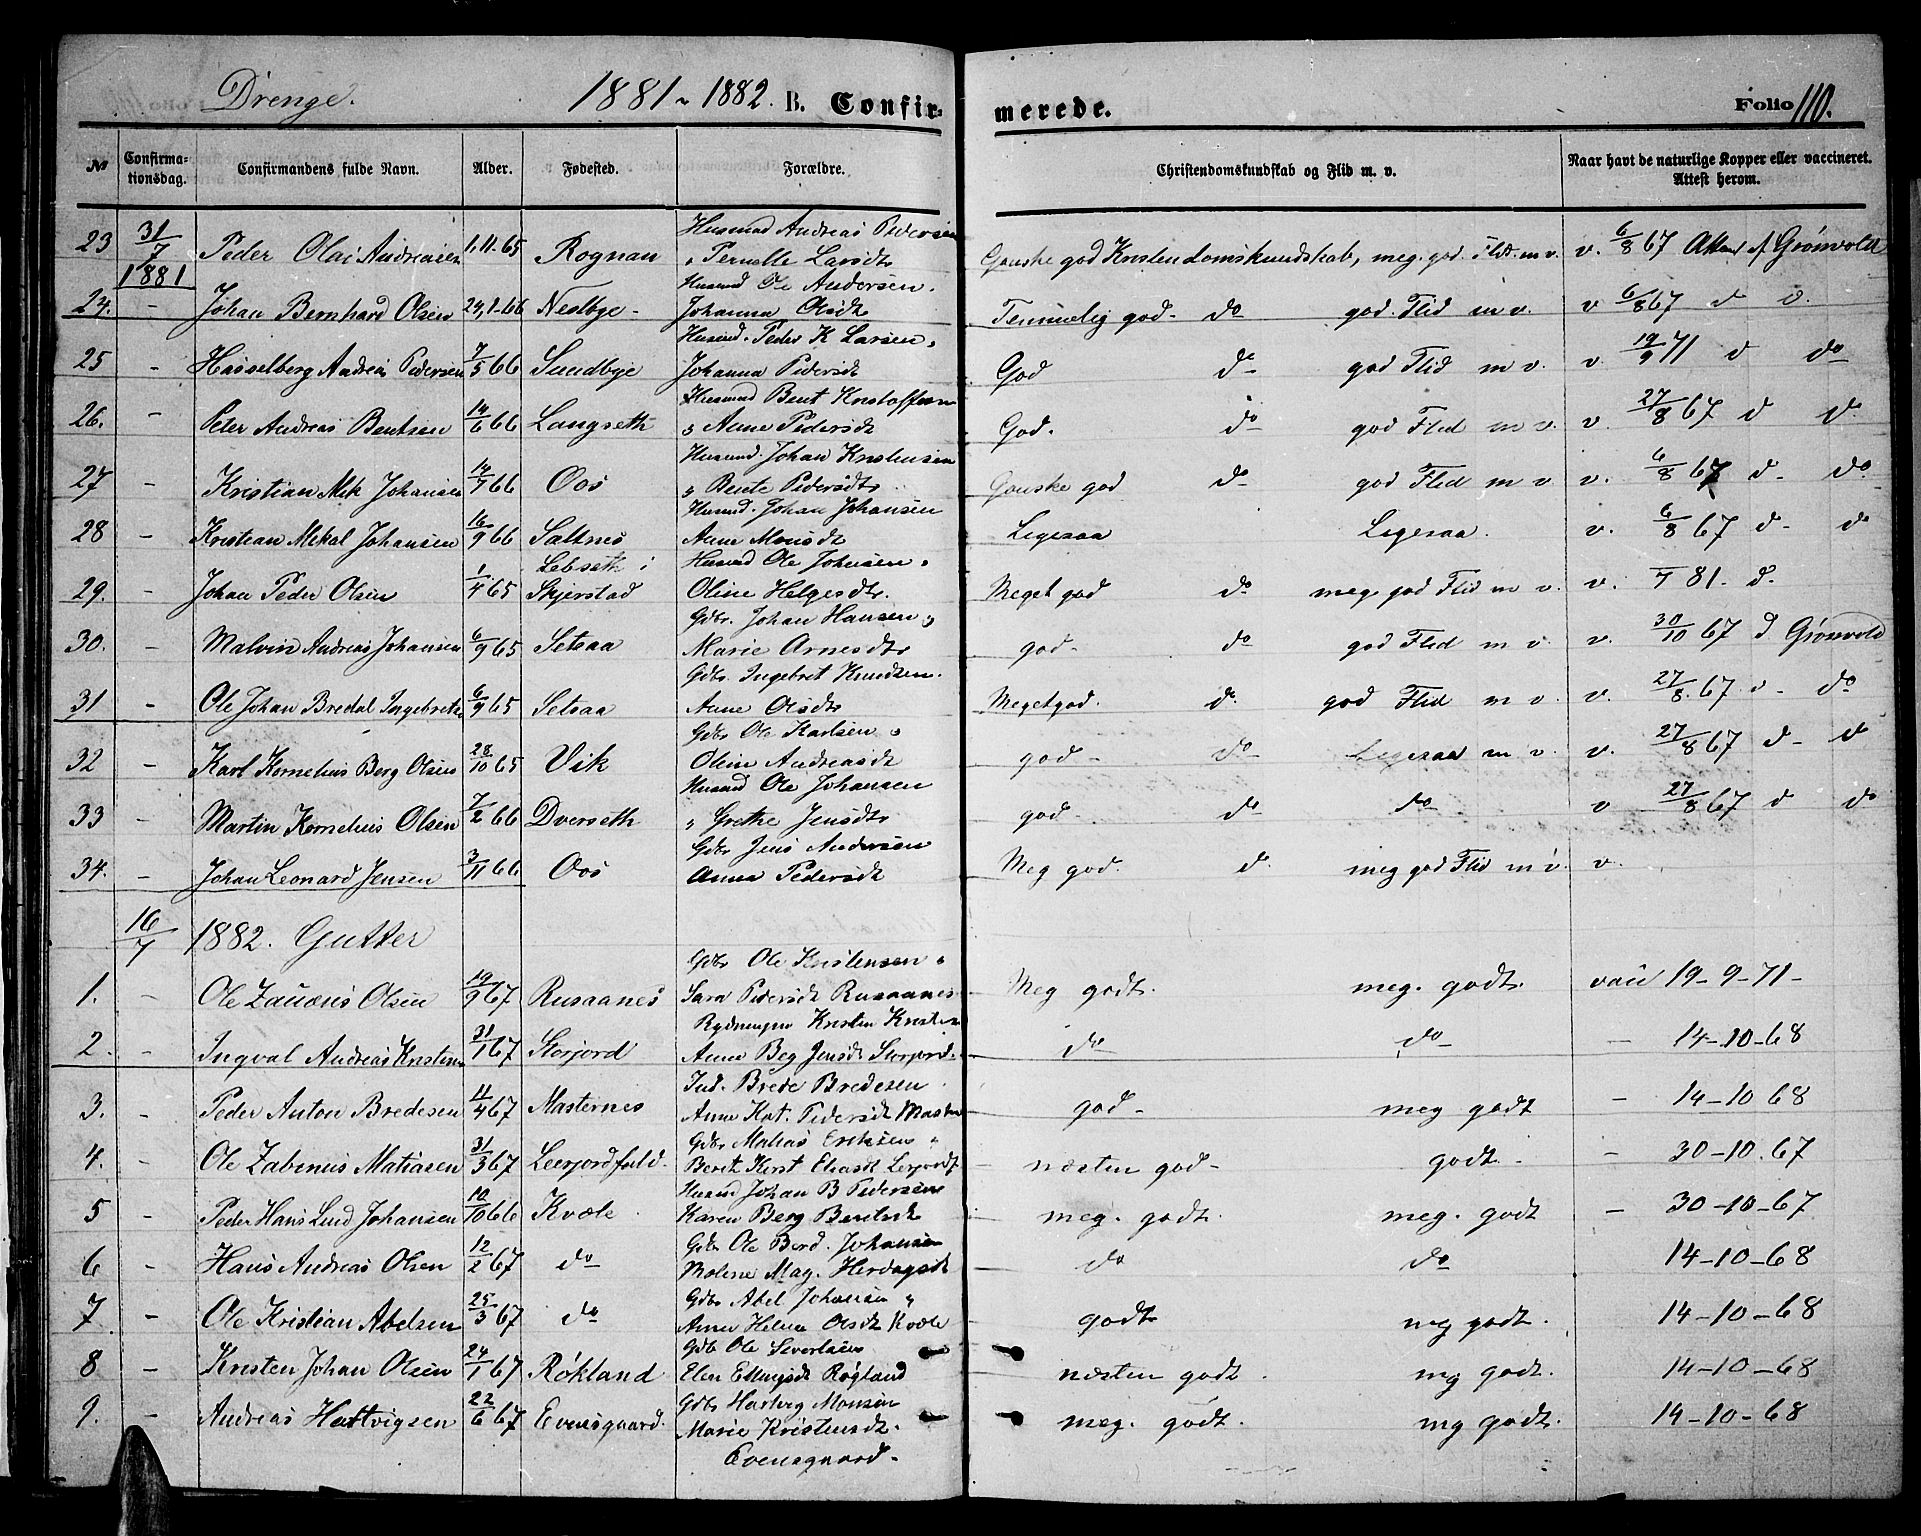 Drenge. 1881 - 1882. B. Confirmerede. Folio 110.
№ Confirmationsdag. Confirmandens fulde Navn. Alder. Fødested. Forældre. Christendomskundskab og Flid m. v. Naar havt de naturlige Kopper eller vaccineret. Attest herom.
Husmd Andreas Pedersen
23 31/7 1881 Peder Olai Andreasen 1.11.65 Rognan Pernelle Larsdtr Ganske god Kristendomskundskab, meg. god Flid m v. v. 6/8 67 Attest af Grønvold
Husmd Ole Andersen.
24. - Johan Bernhard Olsen 24,1-66 Nestbye - Johanna Olsdtr Temmelig god - do god Flid m v. v 6/8 67 d o.
Husmd. Peder K Larsen
25 - Hasselberg Andreas Pedersen 7/5 66 Sundbye Johanna Pedersdt God do god Flid m v. v. 19/9 71 d do
Husmd Bent Kristoffersen
26. - Peter Andreas Bentsen 14/6 66 Langseth Anne Pedersdt God. do god Flid m v. v. 27/8 67 d do
Husmd. Johan Kristensen
27 - Kristian Mek Johansen 14/7 66 Oos Bente Pedersdtr Ganske god do god Flid m v v. 6/8 67 d - do
Husmd. Johan Johansen
28 - Kristian Mekal Johansen 16/9 66 Saltnes Anne Monsdt Ligesaa Ligesaa. v. 6/8 67 d - do
Lebseth i Husmd Ole Johnsen
29. - Johan Peder Olsen 1/4 65 Skjerstad Oline Helgesdtr. Meget god do meg god Flid m v. v. /7 81. d.
Gdbr. Johan Hansen
30. - Malvin Andreas Johansen 6/9 65 Setsaa Marie Arnesdtr god - do god Flid m v. v. 30/10 67 d Grønvold
Gdbr. Ingebret Knudsen.
31 - Ole Johan Bredal Ingebretsen 6/9 65 Setsaa Anne Olsdtr Meget god. do. god Flid m v. v. 27/8 67 d - do
Gdbr Ole Karlsen
32 - Karl Kornelius Berg Olsen 28/10 65 Vik Oline Andreasdt god - do Ligesaa m v. v. 27/8 67 d - do
Husmd Ole Johansen
33 - Martin Kornelius Olsen 7/2 66 Dverseth Grethe Jensdtr god - do do v 27/8 67 d do
Gdbr Jens Andersen
34. - Johan Leonard Jensen 3/11 66 Oos Anna Pedersdt Meg god. d. meg god Flid m v. v.
16/7 1882. Gutter
Gdbr Ole Kristensen
1. - Ole Zauæus Olsen 19/9 67 Rusaanes Sara Pedersdt Rusaanes Meg godt. meg. godt. 19-9-71-
Rydningm Kristen Kristen
2. - Ingval Andreas Kristens 31/1 67 Storjord Anne Beg Jensdt Storjord. do do - 14-10-68
Ind. Brede Bredesen
3. - Peder Anton Bredesen 11/4 67 Masternes Anne Kat. Pedersdt Master god - meg godt - 14-10 68
Gdbr Matias Eriksen
4. - Ole Zabenius Matiasen 31/3 67 Leerjordfald. Berit Kirst Eliasdt Lerjordf næsten god - godt - - 30-10.67
Husmd Johan B Pedersen
5 - Peder Hans Lund Johansen 10/10 66 Kvæle. Karen Berg Bentsdt meg. godt. meg. godt - 30-10-67
Gdbr Ole Berd. Johansen
6 - Hans Andreas Olsen 12/2 67 do Malene Mag. Herdagsdt do do 14-10-68
Gdbr Abel Johansen
7 - Ole Kristian Abelsen 25/3 67 do Anne Helena Olsdt Kvæle godt meg godt. 14-10-68
Gdb Ole Siverlsen
8 - Kristen Johan Olsen 24/1 67 Røkland Elen Ellingsdt Røgland næsten godt. mg godt. 14-10-68
Gdbr Hartvig Monsen
9. - Andreas Hartvigsen 22/6 67 Evensgaard. Marie Kristensdt. meg. godt. mg godt. 14-10-68
Evensgaard -